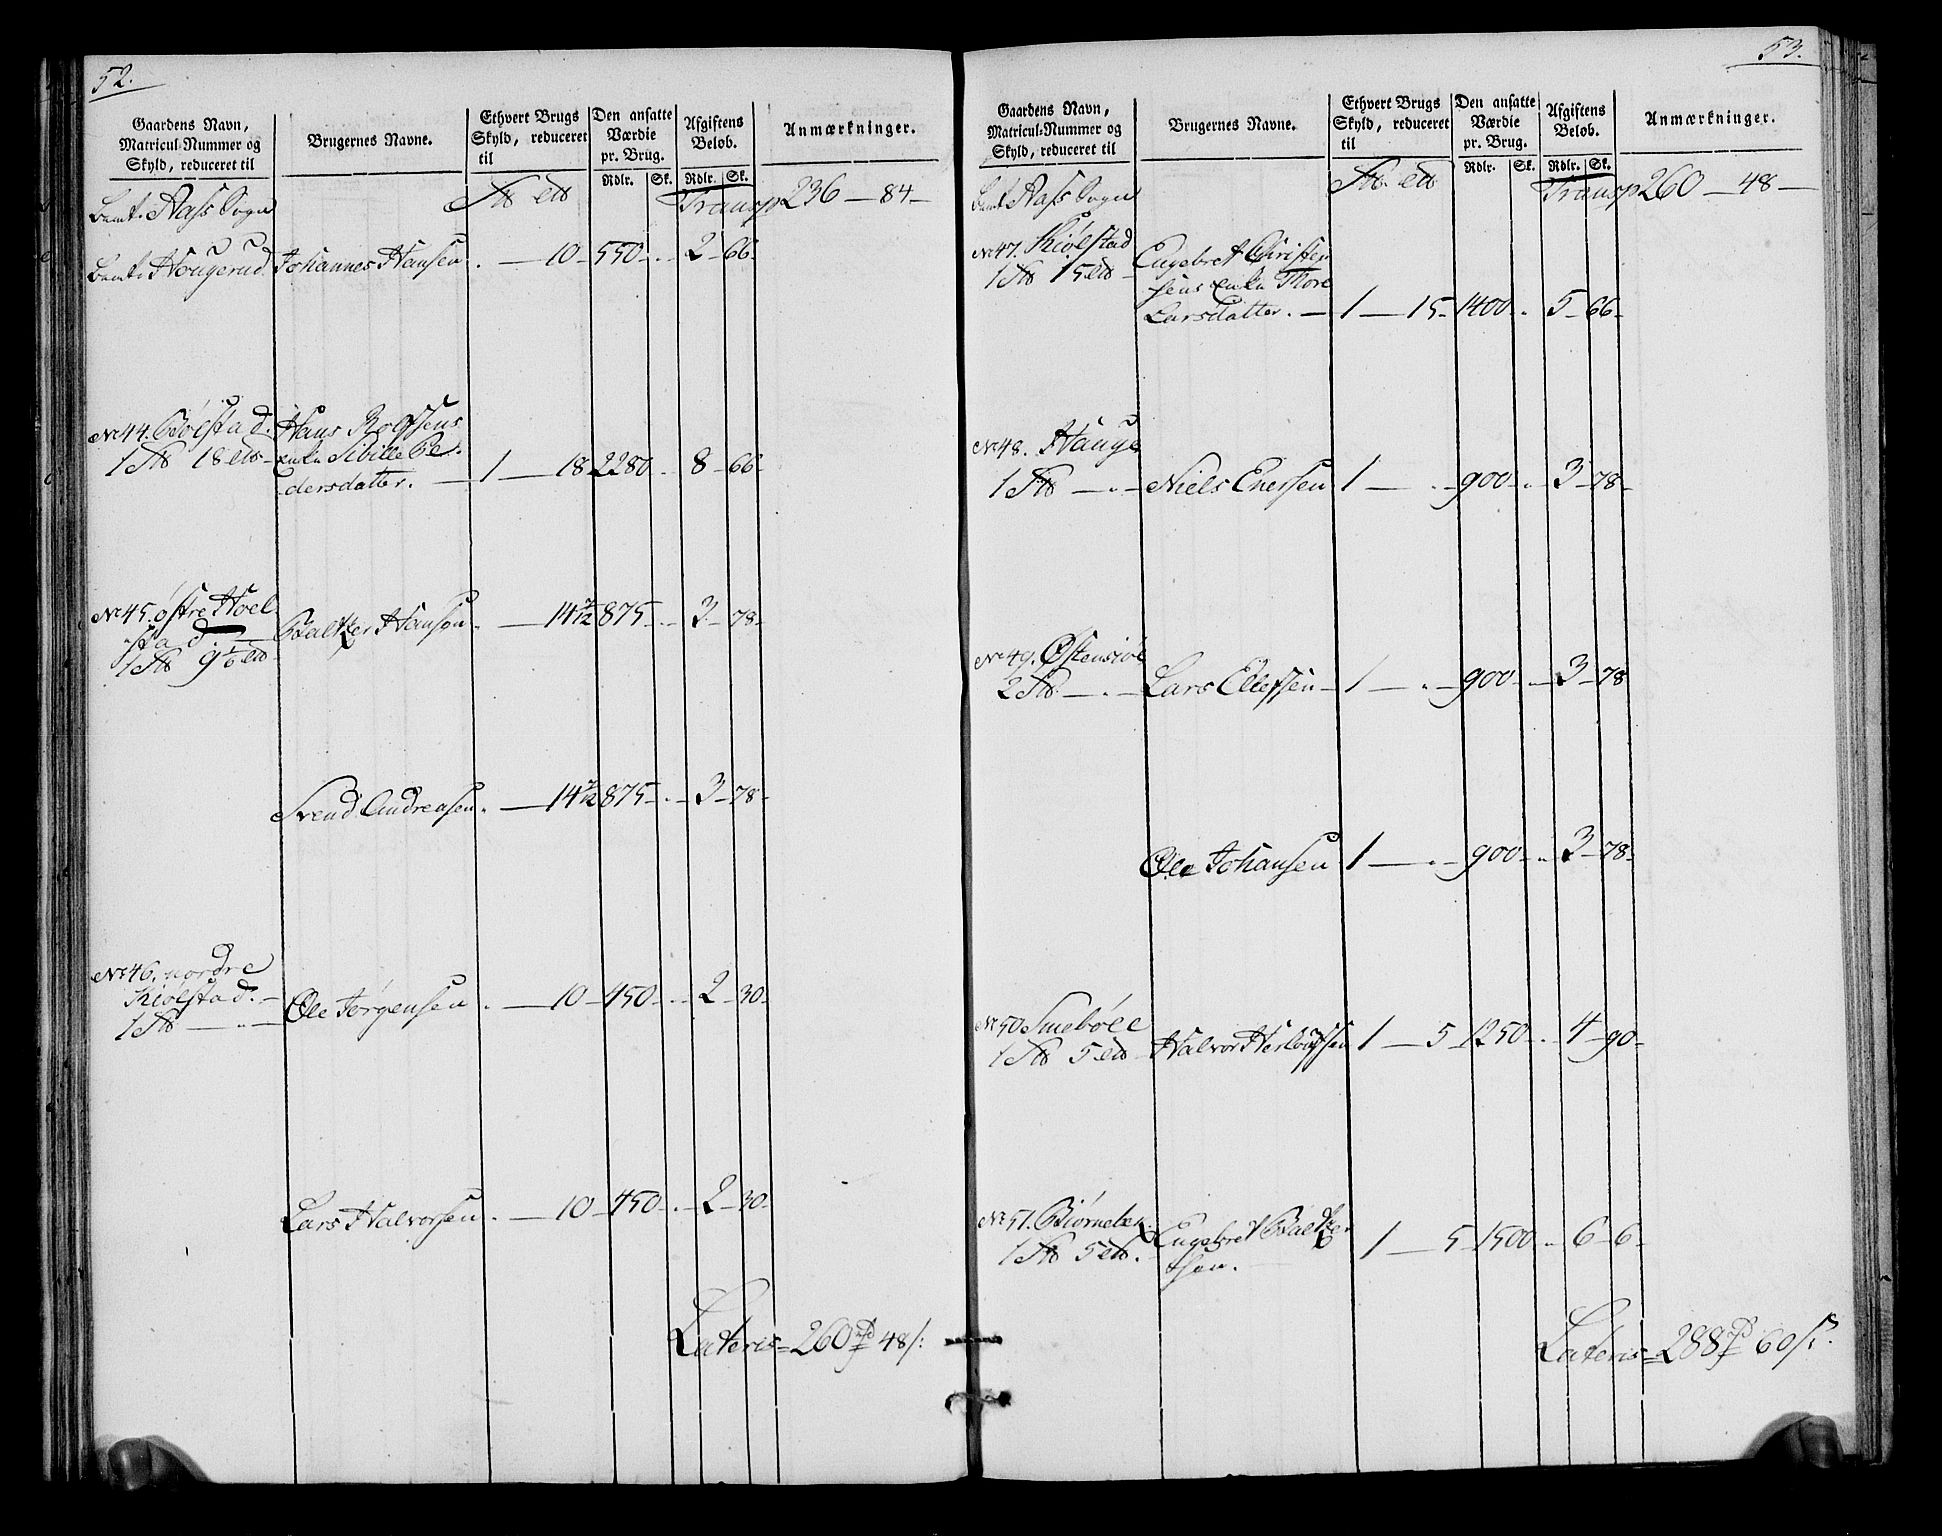 52.
Gaardens Navn,
Matricul-Nummer og
Skyld, reduceret til
Brugernes Navne.
Ethvert Brugs
Skyld, reduceret
til
Den ansatte
Værdie
pr. Brug.
Rdlr. Sk.
Afgiftens
Beløb.
Rdlr. Sk.
Anmærkninger.
Aass Sogn
Transp 236 — 84 —
Hougerud Johannes Hansen . — 10 — 550 - . 2 — 66 -
No 44. Bølstad. Hans Rolfsens
1 18 Enke Sibille Pe-
dersdatter. — 1 — 18 2280 - . 8 — 66 -
No 45. østre Hoel
stad. Baltzer Hansen . — 14 7/12 875 - . 3 — 78 -
1 9 1/6
Svend Andreasen . — 14 7/12 875 - . 3 — 78 -
No 46. nordre
Kiølstad. Ole Jørgensen . — 10 — 450 - . 2 — 30 -
1
Lars Halvorsen . — 10 — 450 - . 2 — 30 -
Lateris = 260 rd 48 s:
53.
Gaardens Navn,
Matricul-Nummer og
Skyld, reduceret til
Brugernes Navne.
Ethvert Brugs
Skyld, reduceret
til
Den ansatte
Værdie
pr. Brug.
Rdlr. Sk.
Afgiftens
Beløb.
Rdlr. Sk.
Anmærkninger.
Aass Sogn
Transp 260 — 48 —
No 47. Kiølstad Engebret Christen-
1 15 sens Enke Thore
Larsdatter. — 1 — 15 - 1400 - . 5 — 66 -
No 48. Hauge
1 Niels Enersen 1 — . - 900 - . 3 — 78 -
No 49. Østensiøe
2 Lars Ellefsen — 1 — . - 900 - . 3 — 78
Ole Johansen 1 — . - 900 - . 3 — 78 -
No 50. Smebøle
1 5 Halvor Herlofsen 1 — 5 - 1250 - . 4 — 90 -
No 51. Biørnebek. Engebret Baltze-
1 5 . 1 — 5 - 1500 - . 6 — 6 -
sen.
Lateris = 288 rd 60 s: